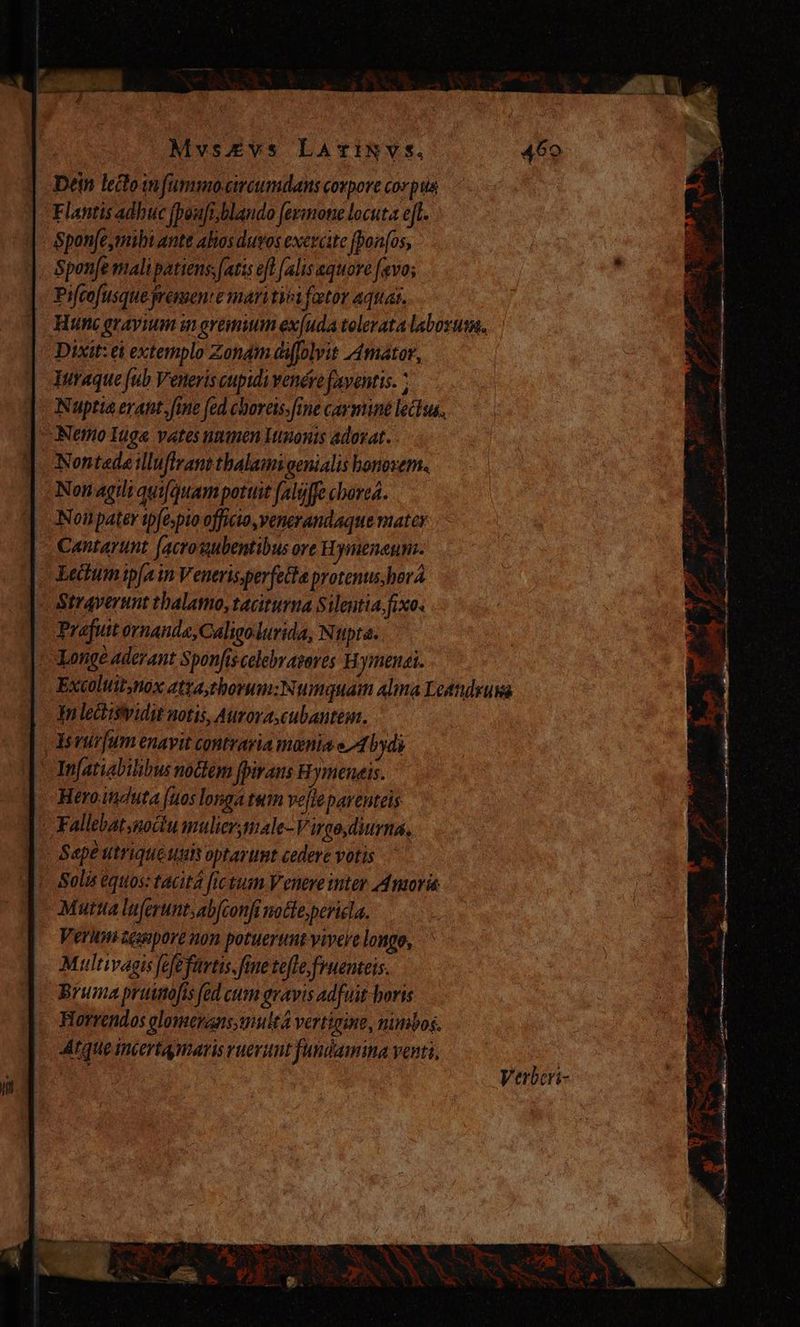 MVSÆVS LATINVS. 469
Dein lecto in ſummo circumdans corpore corpus
Flantis adhuc ſponſi, blando ſermone locuta eſt.
Sponſe, mihi ante alios duros exercite ſponſos,
Sponſe mali patiens, ſatis eſt ſalis æquore ſævo;
Piſcoſusque fremente mari tibi fœtor aquai.
Hunc gravium in gremium exſuda tolerata laborum.
Dixit: et extemplo Zonam diſſolvit Amator,
Iuraque ſub Veneris cupidi venére faventis.
Nuptiæ erant, ſine ſed choreis, ſine carmine lectus,
Nemo Iugæ vates numen Iunonis adorat.
Non tædæ illuſtrant thalami genialis honorem.
Non agili quiſquam potuit ſaliiſſe choreâ.
Non pater ipſe, pio officio, venerandaque mater
Cantarunt ſacro nubentibus ore Hymenæum.
Lectum ipſa in Veneris, perfecta protenus, horâ
Straverunt thalamo, taciturna Silentia, fixo.
Præfuit ornandæ, Caligo lurida, Nuptæ.
Longè aderant Sponſis celebratores Hymenæi.
Excoluit, nox atra, thorum: Numquam alma Leandrum
In lectis vidit notis, Aurora, cubantem.
Is rurſum enavit contraria mœnia Abydi
Inſatiabilibus noctem ſpirans Hymenæis.
Hero induta ſuos longâ tum veſte parenteis
Fallebat, noctu mulier, male-Virgo, diurna.
Sæpè utrique unis optarunt cedere votis
Solis equos: tacitâ ſic tum Venere inter Amoris
Mutua luſerunt, abſconſi nocte, pericla.
Verùm tempore non potuerunt vivere longo,
Multivagis ſeſe furtis, ſine teſte, fruenteis.
Bruma pruinoſis ſed cum gravis adfuit horis
Horrendos glomerans, multâ vertigine, nimbos.
Atque incerta, maris ruerunt fundamina venti,
Verberi-